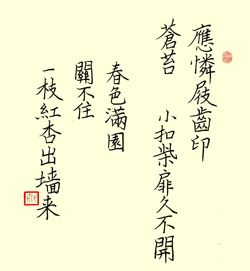 應憐屐齒印
蒼苔　小扣柴扉久不開
春色滿園
關不住
一枝紅杏出墙来